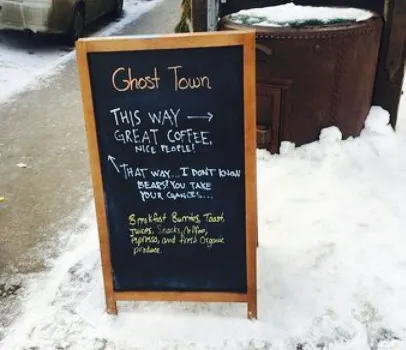 Ghost Town
THIS WAY →
GREAT COFFEE,
NICE PEOPLE!
THAT WAY... I DON'T KNOW
BEARS? YOU TAKE
YOUR CHANCES...
Breakfast Burritos, Toast
Juices, Snacks, Coffee,
Espresso, and fresh Organic
produce.